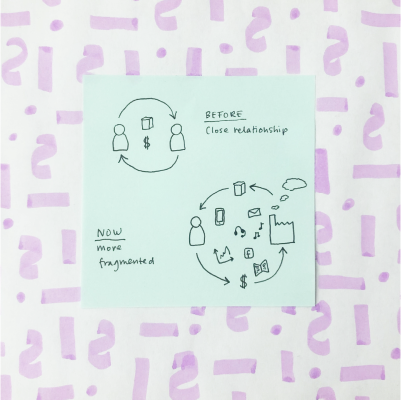 $
BEFORE
Close relationship
NOW
more
fragmented
f
$